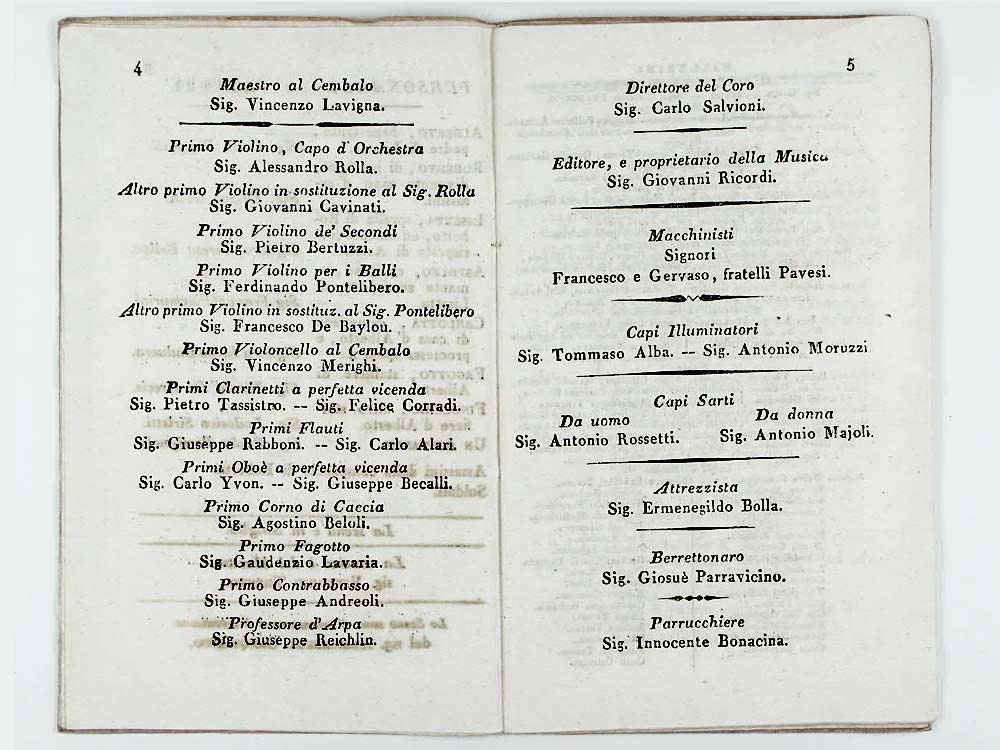 4
Maestro al Cembalo
Sig. Vincenzo Lavigna.
Primo Violino, Capo d'Orchestra
Sig. Alessandro Rolla.
Altro primo Violino in sostituzione al Sig. Rolla
Sig. Giovanni Cavinati.
Primo Violino de' Secondi
Sig. Pietro Bertuzzi.
Primo Violino per i Balli
Sig. Ferdinando Pontelibero.
Altro primo Violino in sostituz. al Sig. Pontelibero
Sig. Francesco De Baylou.
Primo Violoncello al Cembalo
Sig. Vincenzo Merighi.
Primi Clarinetti a perfetta vicenda
Sig. Pietro Tassistro. -- Sig. Felice Corradi.
Primi Flauti
Sig. Giuseppe Rabboni. -- Sig. Carlo Alari.
Primi Oboè a perfetta vicenda
Sig. Carlo Yvon. -- Sig. Giuseppe Becalli.
Primo Corno di Caccia
Sig. Agostino Beloli.
Primo Fagotto
Sig. Gaudenzio Lavaria.
Primo Contrabbasso
Sig. Giuseppe Andreoli.
Professore d'Arpa
Sig. Giuseppe Reichlin.
5
Direttore del Coro
Sig. Carlo Salvioni.
Editore, e proprietario della Musica
Sig. Giovanni Ricordi.
Macchinisti
Signori
Francesco e Gervaso, fratelli Pavesi.
Capi Illuminatori
Sig. Tommaso Alba. -- Sig. Antonio Moruzzi
Capi Sarti
Da uomo Da donna
Sig. Antonio Rossetti. Sig. Antonio Majoli.
Attrezzista
Sig. Ermenegildo Bolla.
Berrettonaro
Sig. Giosuè Parravicino.
Parrucchiere
Sig. Innocente Bonacina.